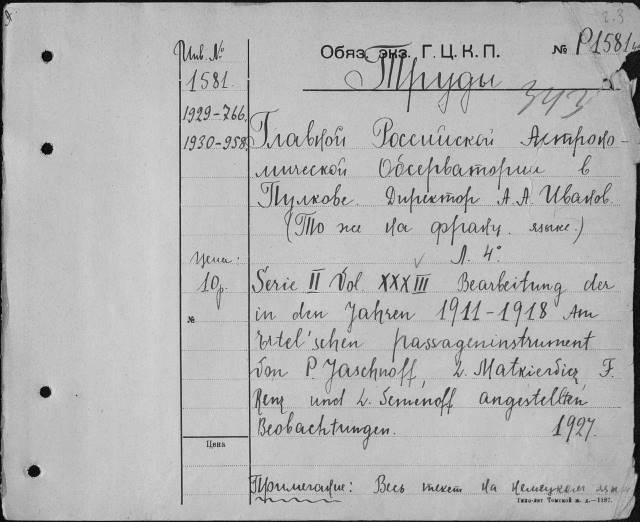 г. 3
Инв. №
1581.
1929-766.
1930-958.
Цена:
10р.
№
Цена
Обяз. экз. Г. Ц. К. П. № Р1581
Труды
343
Главной Российской Астроно-
мической Обсерватории в
Пулкове. Директор А. А. Иванов.
(То же на франц. языке.)
Л. 4°
Serie II Vol. XXXIII Bearbeitung der
in den Jahren 1911-1918 Am
Ertel'schen passageninstrument
von P. Jaschnoff, L. Matkiewicz, F.
Renz und L. Semenoff angestellten
Beobachtungen. 1927.
Примечание: Весь текст на немецком языке
Типо-лит Томской ж. д.—1187.